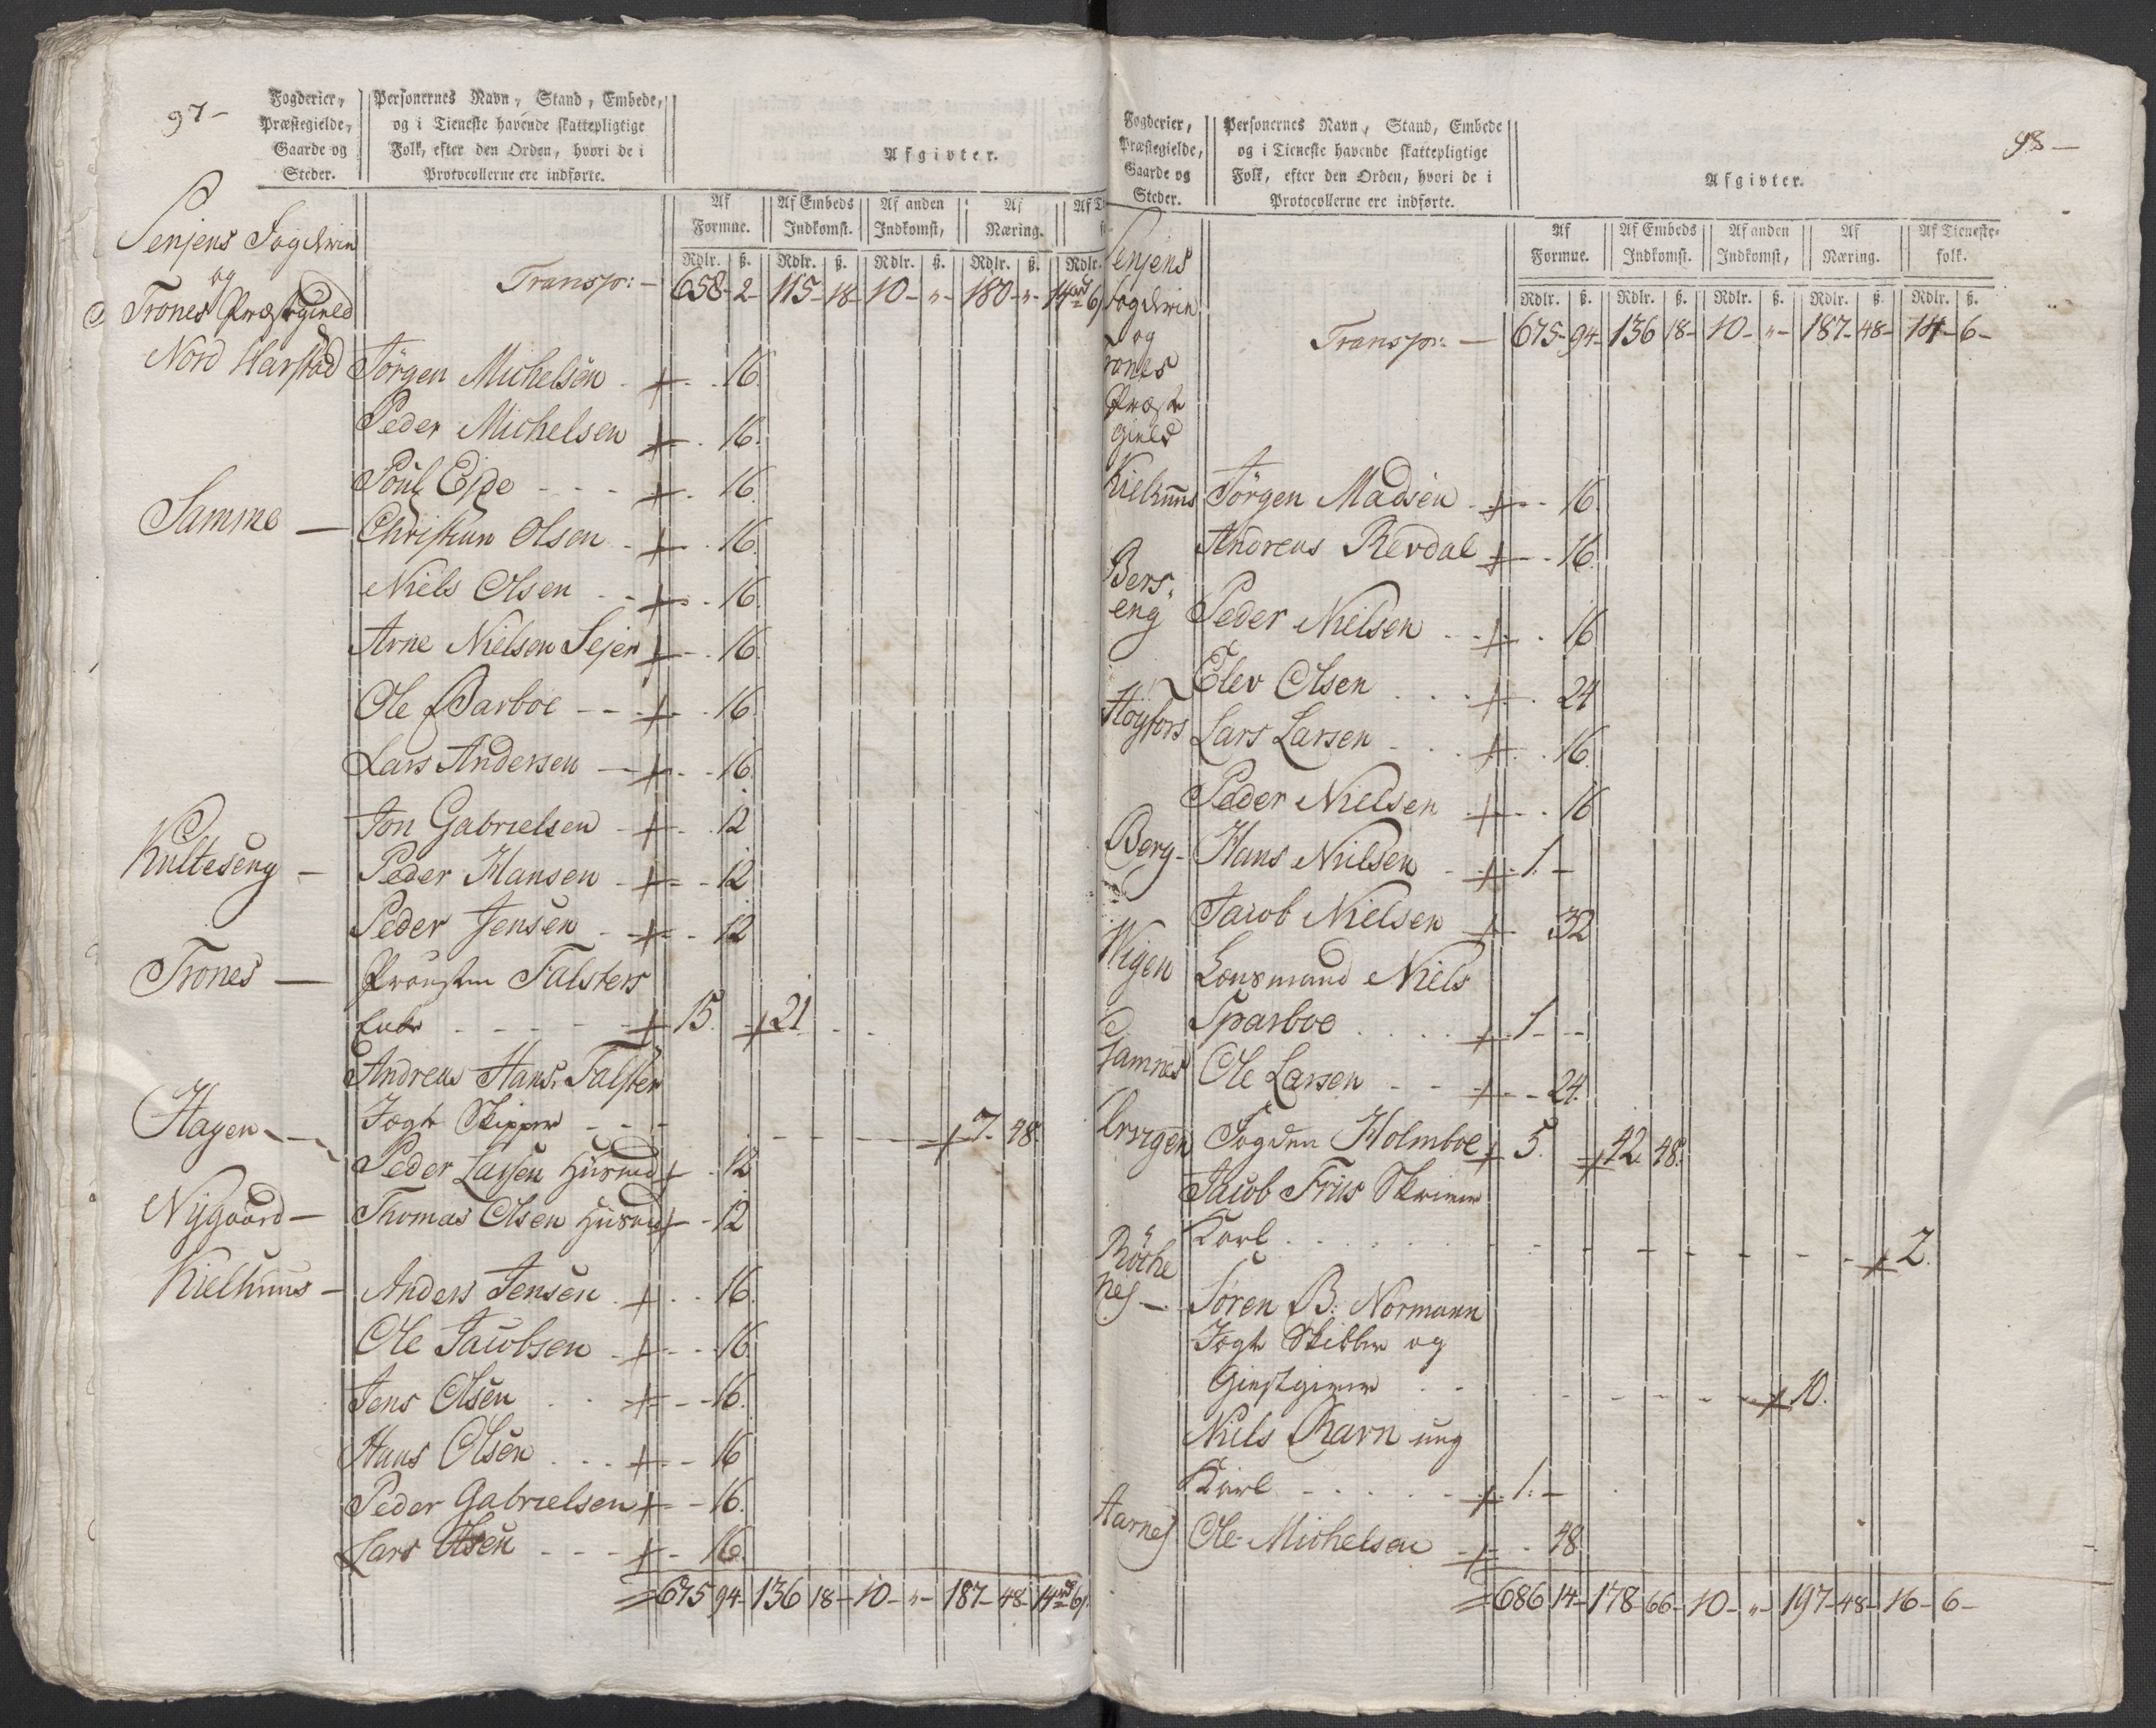 97-
Fogderier, Præstegielde, Gaarde og Steder.
Personernes Navn, Stand, Embede, og i Tieneste havende skattepligtige Folk, efter den Orden, hvori de i Protocollerne ere indførte.
Afgivter.
Af Formue. Af Embeds Indkomst. Af anden Indkomst, Af Næring.
Rdlr. ß. Rdlr. ß. Rdlr. ß. Rdlr. ß. Rdlr.
Senjens Fogderie
og
Trones Præstegield
Transp: — 658- 2- 115- 18- 10- "- 180- "- 14 6
Nord Harstad Jörgen Michelsen + 16.
Peder Michelsen + 16.
Poul Ejde + 16
Samme — Christian Olsen + 16.
Niels Olsen + 16.
Arne Nielsen Sejer + 16.
Ole Barboe + 16
Lars Andersen + 16.
Jon Gabrielsen + 12
Kulteseng — Peder Hansen + 12
Peder Jensen + 12
Trones — Provsten Falsters
Enke + 15. + 21.
Andreas Hans. Falster
Jægt Skipper + 7. 48.
Hagen Peder Larsen Huusmd + 12
Nygaard — Thomas Olsen Huusmd + 12
Kielhuus — Anders Jensen + 16.
Ole Jacobsen + 16.
Jens Olsen + 16.
Hans Olsen + 16
Peder Gabrielsen + 16.
Lars Olsen + 16.
675 94- 136 18- 10- "- 187- 48- 14 6
98-
Fogderier, Præstegielde, Gaarde og Steder.
Personernes Navn, Stand, Embede og i Tieneste havende skattepligtige Folk, efter den Orden, hvori de i Protocollerne ere indførte.
Afgivter.
Af Formue. Af Embeds Indkomst. Af anden Indkomst, Af Næring. Af Tieneste-folk.
Rdlr. ß. Rdlr. ß. Rdlr. ß. Rdlr. ß. Rdlr. ß.
Senjens
Fogderie
og
Trones
Præste
gield
Transp: — 675- 94- 136 18- 10- "- 187- 48- 14- 6-
Kielhuus Jörgen Madsen + 16.
Andreas Revdal + 16.
Bers-
eng Peder Nielsen + 16
Elev Olsen + 24
Höyfors Lars Larsen + 16.
Peder Nielsen + 16
Berg- Hans Nielsen + 1. -
Jacob Nielsen + 32
Wigen Lensmand Niels
Sparboe + 1 --
Samnes Ole Larsen + 24.
Fogden Holmboe + 5. + 42. 48.
Jacob Friis Skriver
Karl + 2.
Röche
nes — Sören B: Normann
Jægt Skibber og
Giestgiver + 10.
Niels Ravn ung
Karl + 1. -
Aarnes Ole Michelsen + 48
686 14- 178 66- 10- "- 197- 48- 16- 6-